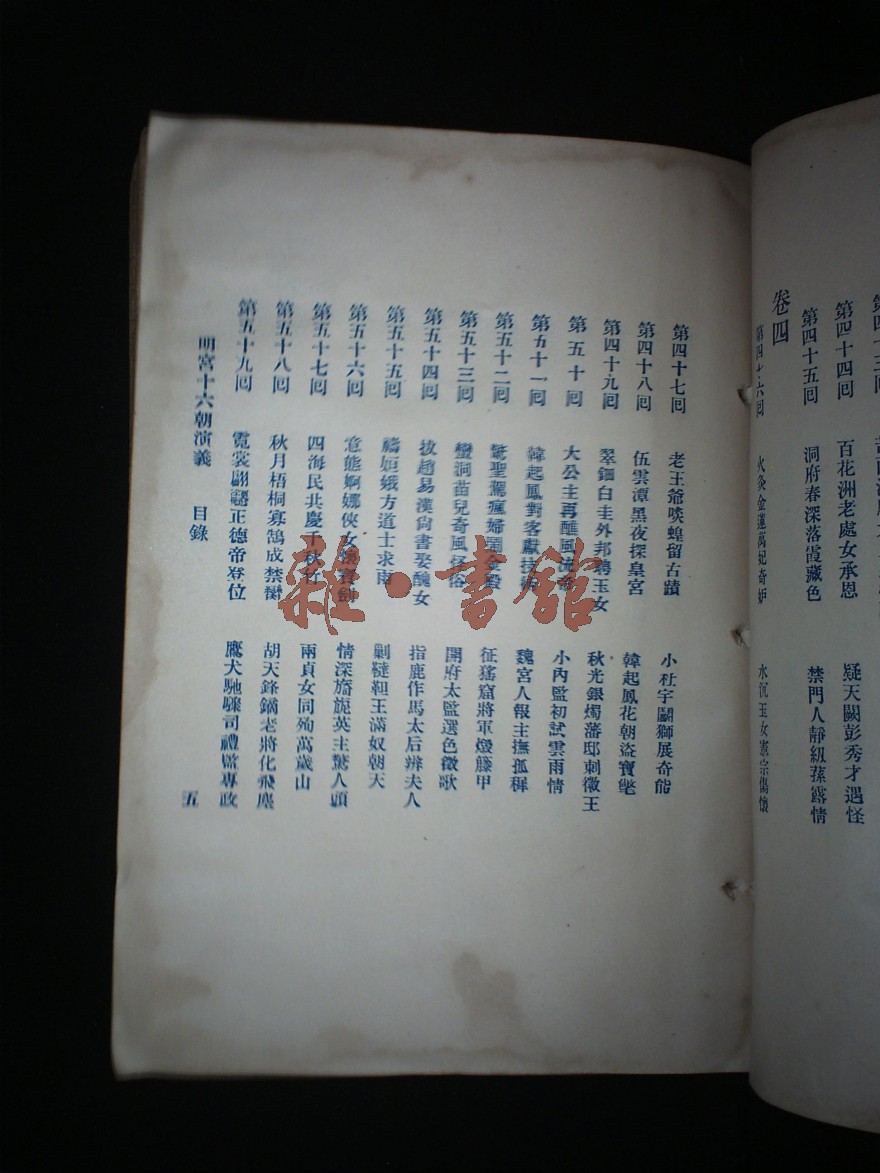 百花洲老處女承恩
第四十四回 疑天闕彭秀才遇怪
第四十五回 洞府春深落霞藏色 禁門人靜級蓀露情
卷四
第四十六回 火灸金蓮萬妃奇妒 水沉玉女憲宗傷懷
第四十七回 老王爺啖蝗留古蹟 小杜宇鬬獅展奇能
第四十八回 伍雲潭黑夜探皇宮 韓起鳳花朝盜寶氅
第四十九回 翠鈿白圭外邦 玉女 秋光銀燭藩邸刺徽王
第五十回 大公主再醮風流 小內監初試雲雨情
第五十一回 韓起鳳對客獻技 魏宮人報主撫孤穉
第五十二回 驚聖駕瘋婦鬧金殿 征猺窟將軍燬籐甲
第五十三回 蠻洞苗兒奇風怪俗 開府太監選色徵歌
第五十四回 拔趙易漢尙書娶醜女 指鹿作馬太后辨夫人
第五十五回 禱姮娥方道士求雨 剿韃靼王滿奴朝天
第五十六回 意態婀娜俠女懷寶劍 情深旖旎英主驚人頭
第五十七回 四海民共慶千秋 兩貞女同殉萬歲山
第五十八回 秋月梧桐寡鵠成禁臠 胡天鋒鏑老將化飛塵
第五十九回 霓裳翩翩正德帝登位 鷹犬馳驟司禮監專政
明宮十六朝演義 目錄 五
雜·書館